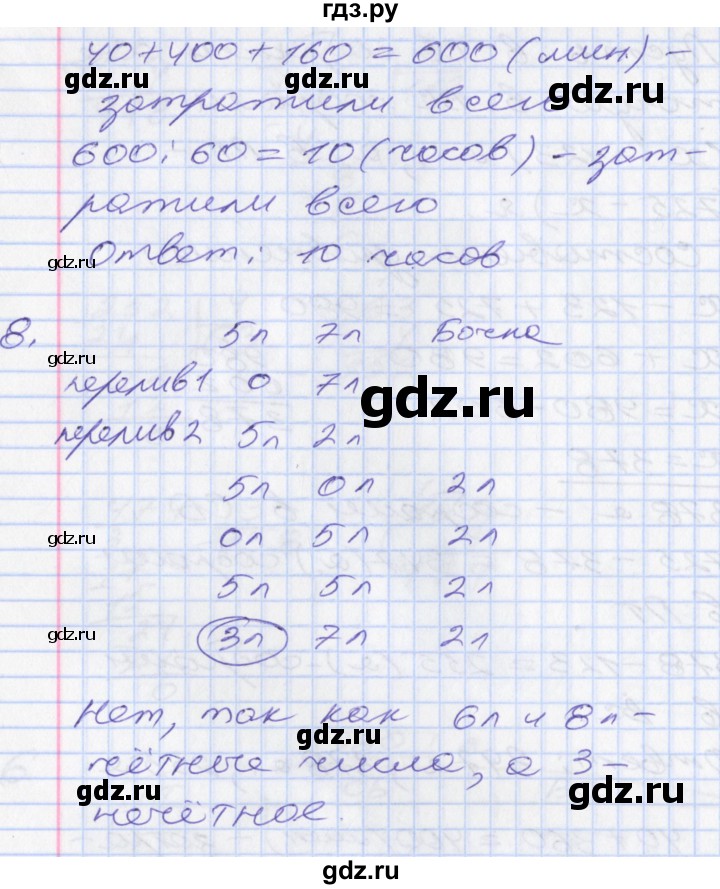 гдз.ру
40+400+160=600 (мин) -
gdz.ru gdz.ru
затратили всего
gdz.ru gdz.ru
600:60=10 (часов) - зат-
ратили всего
gdz.ru
Ответ: 10 часов
8. 5л 7л Бочка
gdz.ru
перелив1 0 7л
gdz.ru
перелив2 5л 2л
5л 0л 2л
gdz.ru
0л 5л 2л
gdz.ru
5л 5л 2л
gdz.ru
3л 7л 2л
gdz.ru
Нет, так как 6л и 8л -
gdz.ru
чётные числа, а 3 -
gdz.ru gdz.ru
нечётное.
gdz.ru